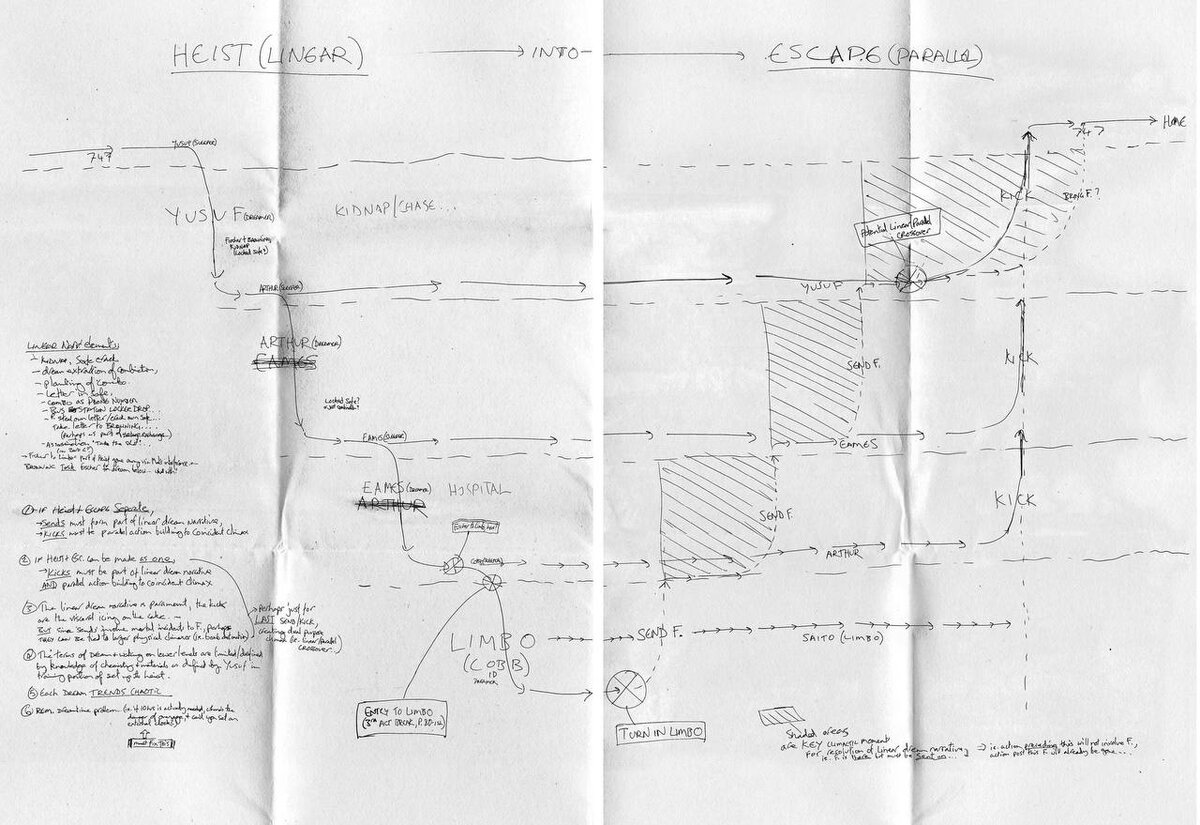 HEIST (LINEAR)
INTO
ESCAPE (PARALLEL)
747
YUSUF (SURFACE)
YUSUF (DREAMER)
KIDNAP/CHASE...
Fischer + Browning
KIDNAP
(Locked Safe?)
ARTHUR (SURFACE)
ARTHUR (DREAMER)
EAMES
Locked Safe?
EAMES (SURFACE)
EAMES (DREAMER)
ARTHUR
HOSPITAL
LIMBO
(COBB)
ENTRY TO LIMBO
TURN IN LIMBO
SEND F.
SAITO (LIMBO)
ARTHUR
SEND F.
EAMES
SEND F.
YUSUF
Potential Linear/Parallel
CROSSOVER
KICK
KICK
KICK
BRING F.?
747
HOME
- KIDNAP, Safe crack
- dream extraction of combination,
- planting of combo
- Letter in safe,
- COMBO AS PHONE NUMBER
- BUS STATION LOCKER DROP
Take letter to BROWNING....
① IF Heist + Escape Separate,
→ Sends must form part of linear dream Narrative,
→ KICKS must be parallel action building to coincident climax
② IF HEIST + Esc. can be made as one,
→ Kicks must be part of linear dream narrative
AND parallel action building to coincident climax
③ The linear dream narrative is paramount, the kicks
are the visceral icing on the cake. —
BUT since sends involve mortal incidents to F., perhaps
they can be tied to larger physical climaxes (i.e. bomb detonation)
Perhaps just for
LAST SEND/KICK,
creating dual purpose
climax (i.e. linear/parallel
CROSSOVER.
④ The terms of Dream working on lower levels are limited/defined
by knowledge of chemistry + materials as defined by Yusuf in
training portion of set up to heist.
⑤ Each Dream TRENDS CHAOTIC
⑥ REM. Dreamtime problem
must fix this
Shaded areas
are KEY CLIMACTIC moment
FOR resolution of linear dream narrative,
→ i.e. action preceding this will not involve F.,
action post this F. will already be gone....